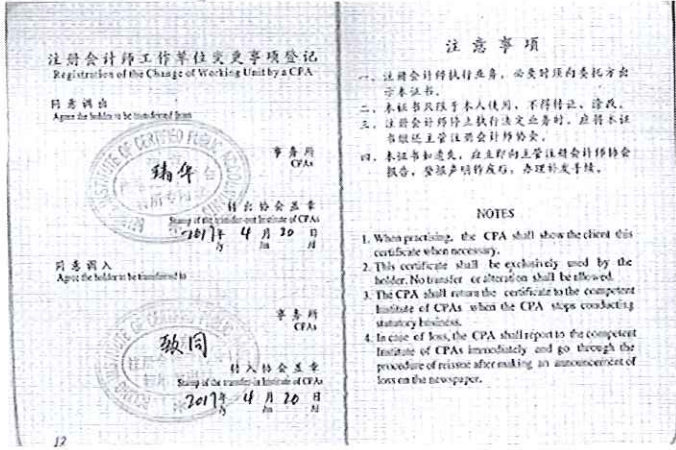 注册会计师工作单位变更事项登记
Registration of the Change of Working Unit by a CPA
同意调出
Agree the holder to be transferred from
事务所
CPAs
转出协会盖章
Stamp of the transfer-out Institute of CPAs
2017年 4月 20日
/y /m /d
同意调入
Agree the holder to be transferred to
事务所
CPAs
致同
转入协会盖章
Stamp of the transfer-in Institute of CPAs
2017年 4月 20日
/y /m /d
12
注意事项
一、注册会计师执行业务，必要时须向委托方出
示本证书。
二、本证书只限于本人使用，不得转让、涂改。
三、注册会计师停止执行法定业务时，应将本证
书缴还主管注册会计师协会。
四、本证书如遗失，应立即向主管注册会计师协会
报告，登报声明作废后，办理补发手续。
NOTES
1. When practising, the CPA shall show the client this
certificate when necessary.
2. This certificate shall be exclusively used by the
holder. No transfer or alteration shall be allowed.
3. The CPA shall return the certificate to the competent
Institute of CPAs when the CPA stops conducting
statutory business.
4. In case of loss, the CPA shall report to the competent
Institute of CPAs immediately and go through the
procedure of reissue after making an announcement of
loss on the newspaper.